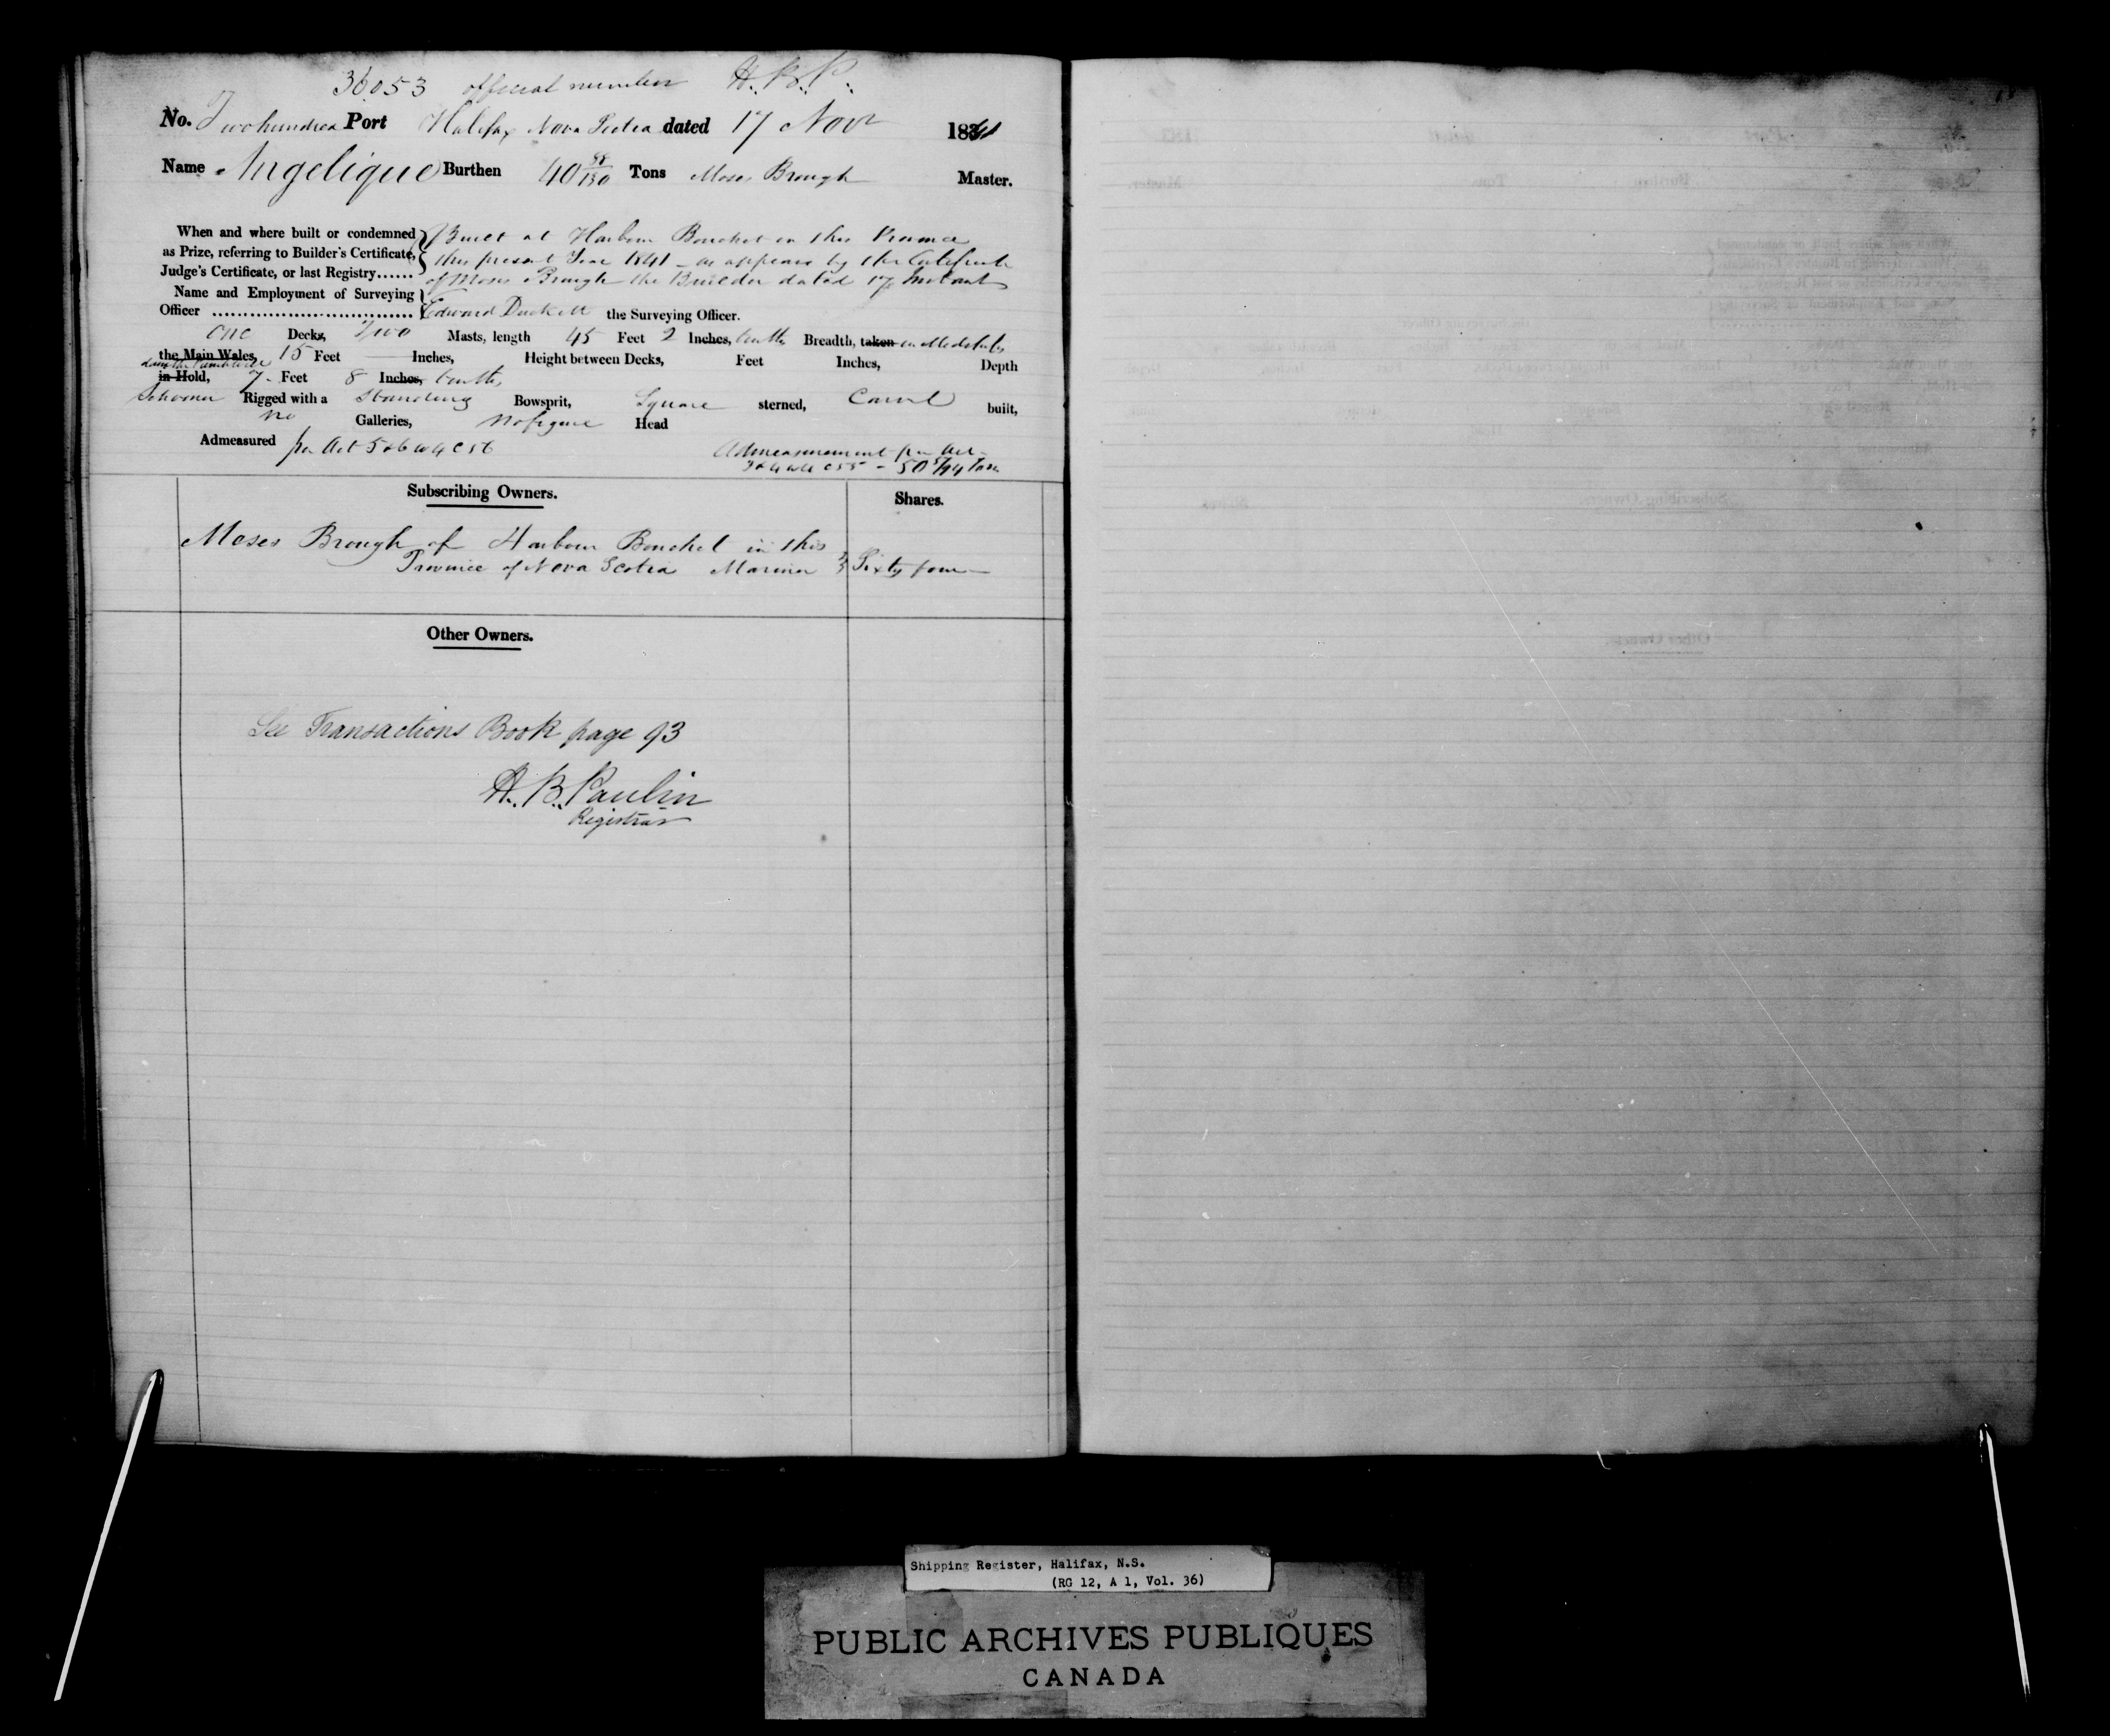 36053 official number H.B.P.
No. Two hundred Port Halifax Nova Scotia dated 17 Novr 1841
Name Angelique Burthen 40 88/130 Tons Moses Brough Master.
When and where built or condemned Built at Harbour Bouchet in this Province
as Prize, referring to Builder's Certificate, this present Year 1841 - as appears by the Certificate
Judge's Certificate, or last Registry...... of Moses Brough the Builder dated 17 Instant
Name and Employment of Surveying
Officer ................................. Edward Duckett the Surveying Officer.
One Decks, Two Masts, length 45 Feet 2 Inches, tenths Breadth, taken in Midships
the Main Wales, 15 Feet — Inches, Height between Decks, Feet Inches, Depth
in Hold, 7 Feet 8 Inches, tenths
Schooner Rigged with a Standing Bowsprit, Square sterned, Carvel built,
no Galleries, No figure Head
Admeasured per Act 5 & 6 W 4 C 56
Admeasurement per Act
3 & 4 W 4 C 55 - 50 5/94 Tons
Subscribing Owners. Shares.
Moses Brough of Harbour Bouchet in this
Province of Nova Scotia Mariner Sixty four
Other Owners.
See Transactions Book page 93
H. B. Paulin
Registrar
Shipping Register, Halifax, N.S.
(RG 12, A 1, Vol. 36)
PUBLIC ARCHIVES PUBLIQUES
CANADA